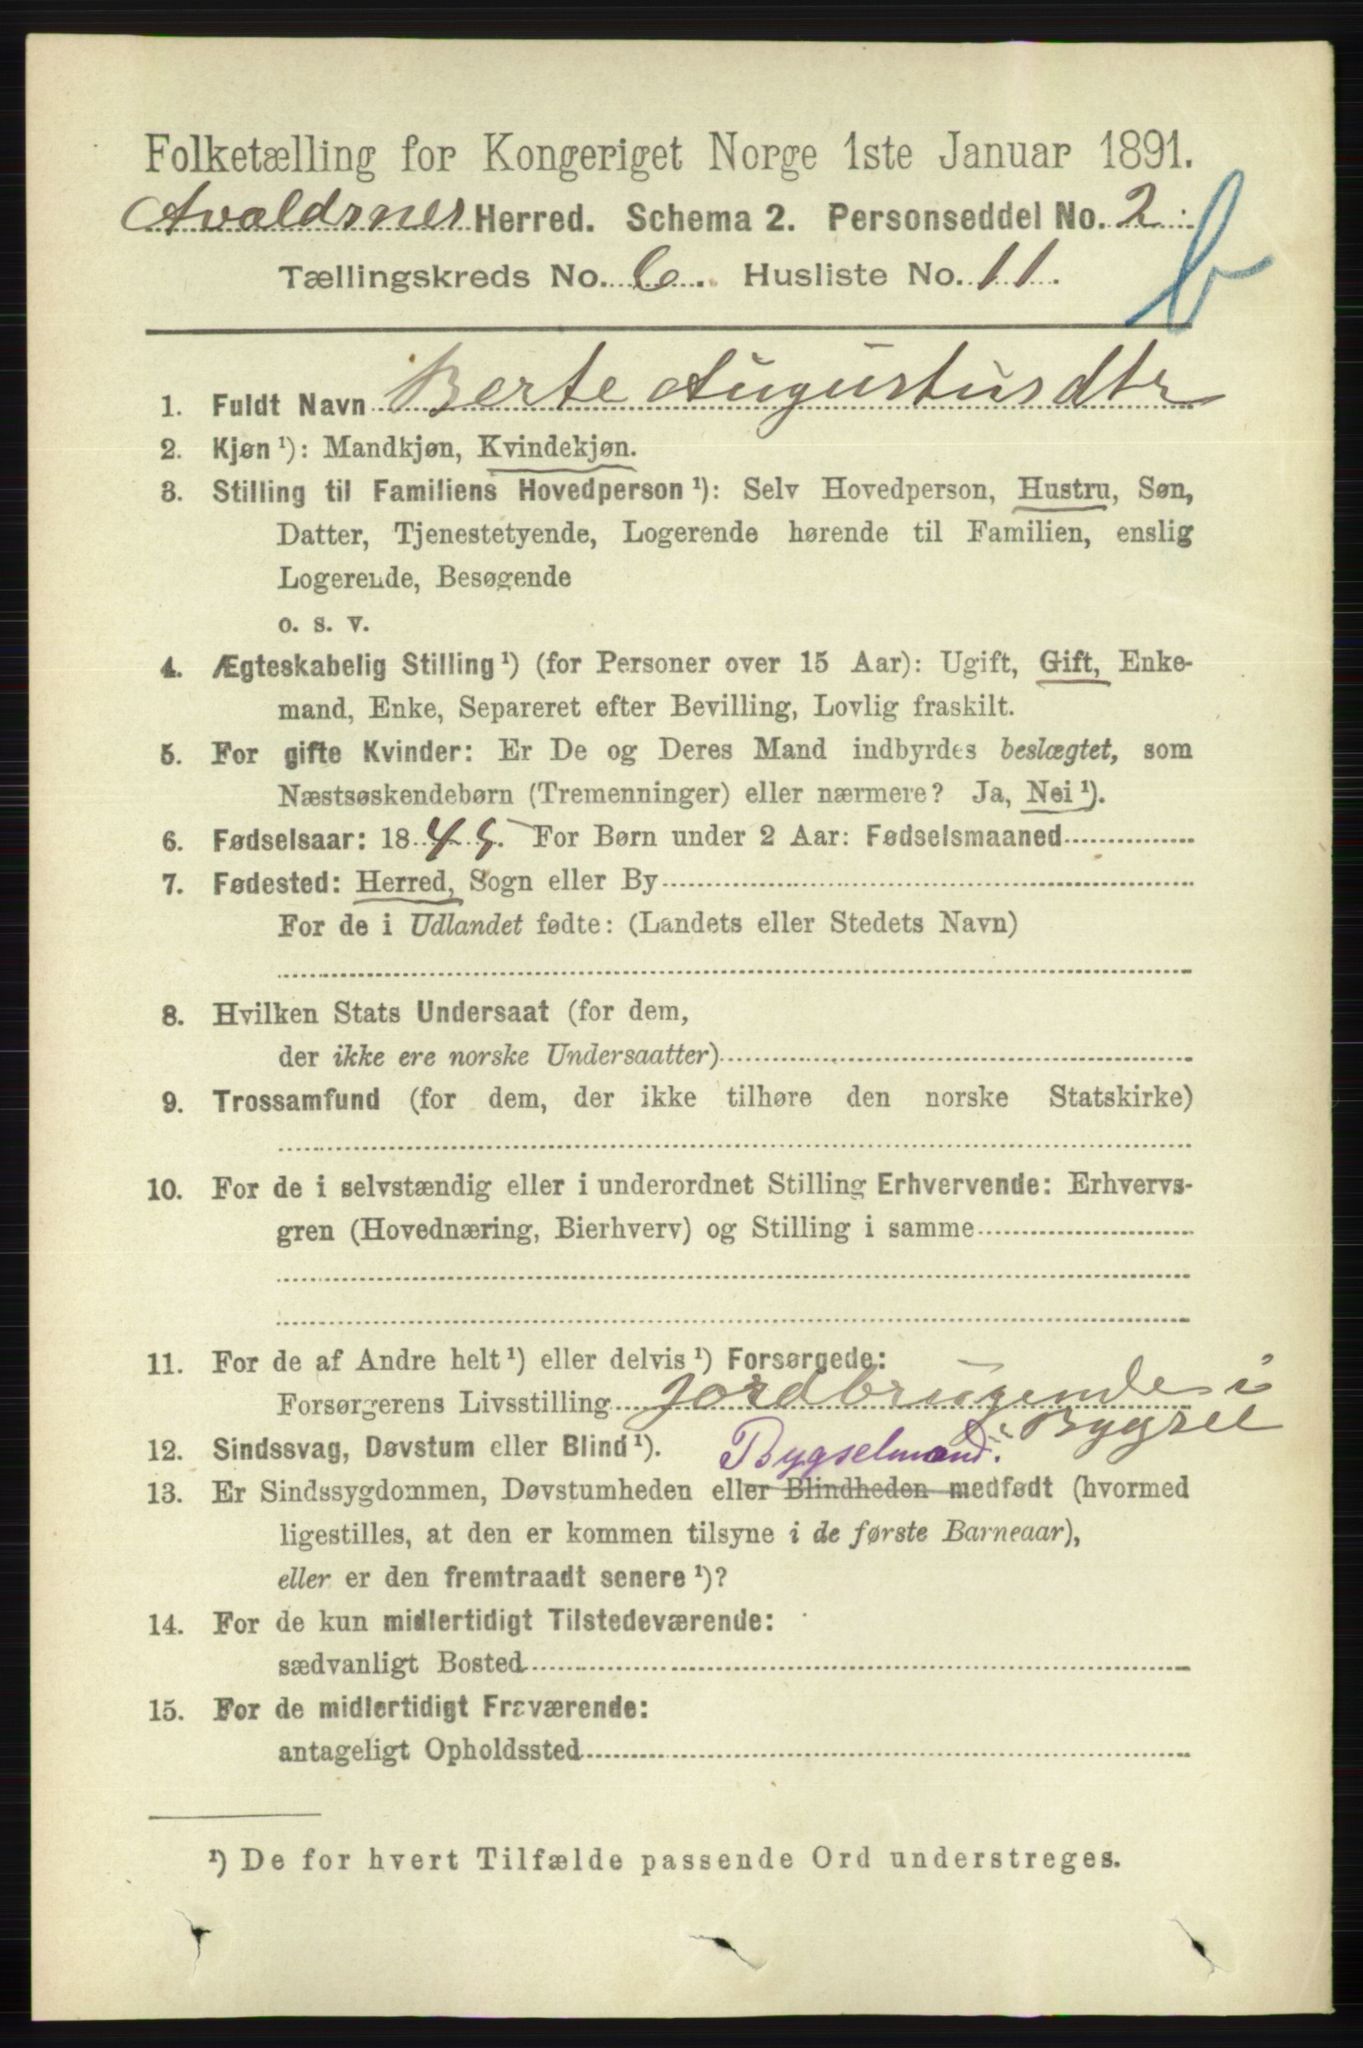 Folketælling for Kongeriget Norge 1ste Januar 1891.
Avaldsnes Herred. Schema 2. Personseddel No. 2.
b
Tællingskreds No. 6. Husliste No. 11.
1. Fuldt Navn Berte Augustusdtr
2. Kjøn¹): Mandkjøn, Kvindekjøn.
3. Stilling til Familiens Hovedperson¹): Selv Hovedperson, Hustru, Søn,
Datter, Tjenestetyende, Logerende hørende til Familien, enslig
Logerende, Besøgende
o. s. v.
4. Ægteskabelig Stilling¹) (for Personer over 15 Aar): Ugift, Gift, Enke-
mand, Enke, Separeret efter Bevilling, Lovlig fraskilt.
5. For gifte Kvinder: Er De og Deres Mand indbyrdes beslægtet, som
Næstsøskendebørn (Tremenninger) eller nærmere? Ja, Nei¹).
6. Fødselsaar: 1845. For Børn under 2 Aar: Fødselsmaaned
7. Fødested: Herred, Sogn eller By
For de i Udlandet fødte: (Landets eller Stedets Navn)
8. Hvilken Stats Undersaat (for dem,
der ikke ere norske Undersaatter)
9. Trossamfund (for dem, der ikke tilhøre den norske Statskirke)
10. For de i selvstændig eller i underordnet Stilling Erhvervende: Erhvervs-
gren (Hovednæring, Bierhverv) og Stilling i samme
11. For de af Andre helt¹) eller delvis¹) Forsørgede:
Forsørgerens Livsstilling Jordbrugende i
Bygsel
12. Sindssvag, Døvstum eller Blind¹). Bygselmand.
13. Er Sindssygdommen, Døvstumheden eller Blindheden medfødt (hvormed
ligestilles, at den er kommen tilsyne i de første Barneaar),
eller er den fremtraadt senere¹)?
14. For de kun midlertidigt Tilstedeværende:
sædvanligt Bosted
15. For de midlertidigt Fraværende:
antageligt Opholdssted
¹) De for hvert Tilfælde passende Ord understreges.